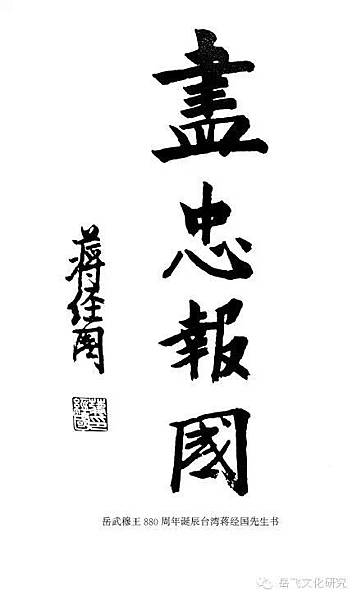 盡忠報國
蔣经國
岳武穆王 880 周年诞辰台湾蒋经国先生书
岳飞文化研究